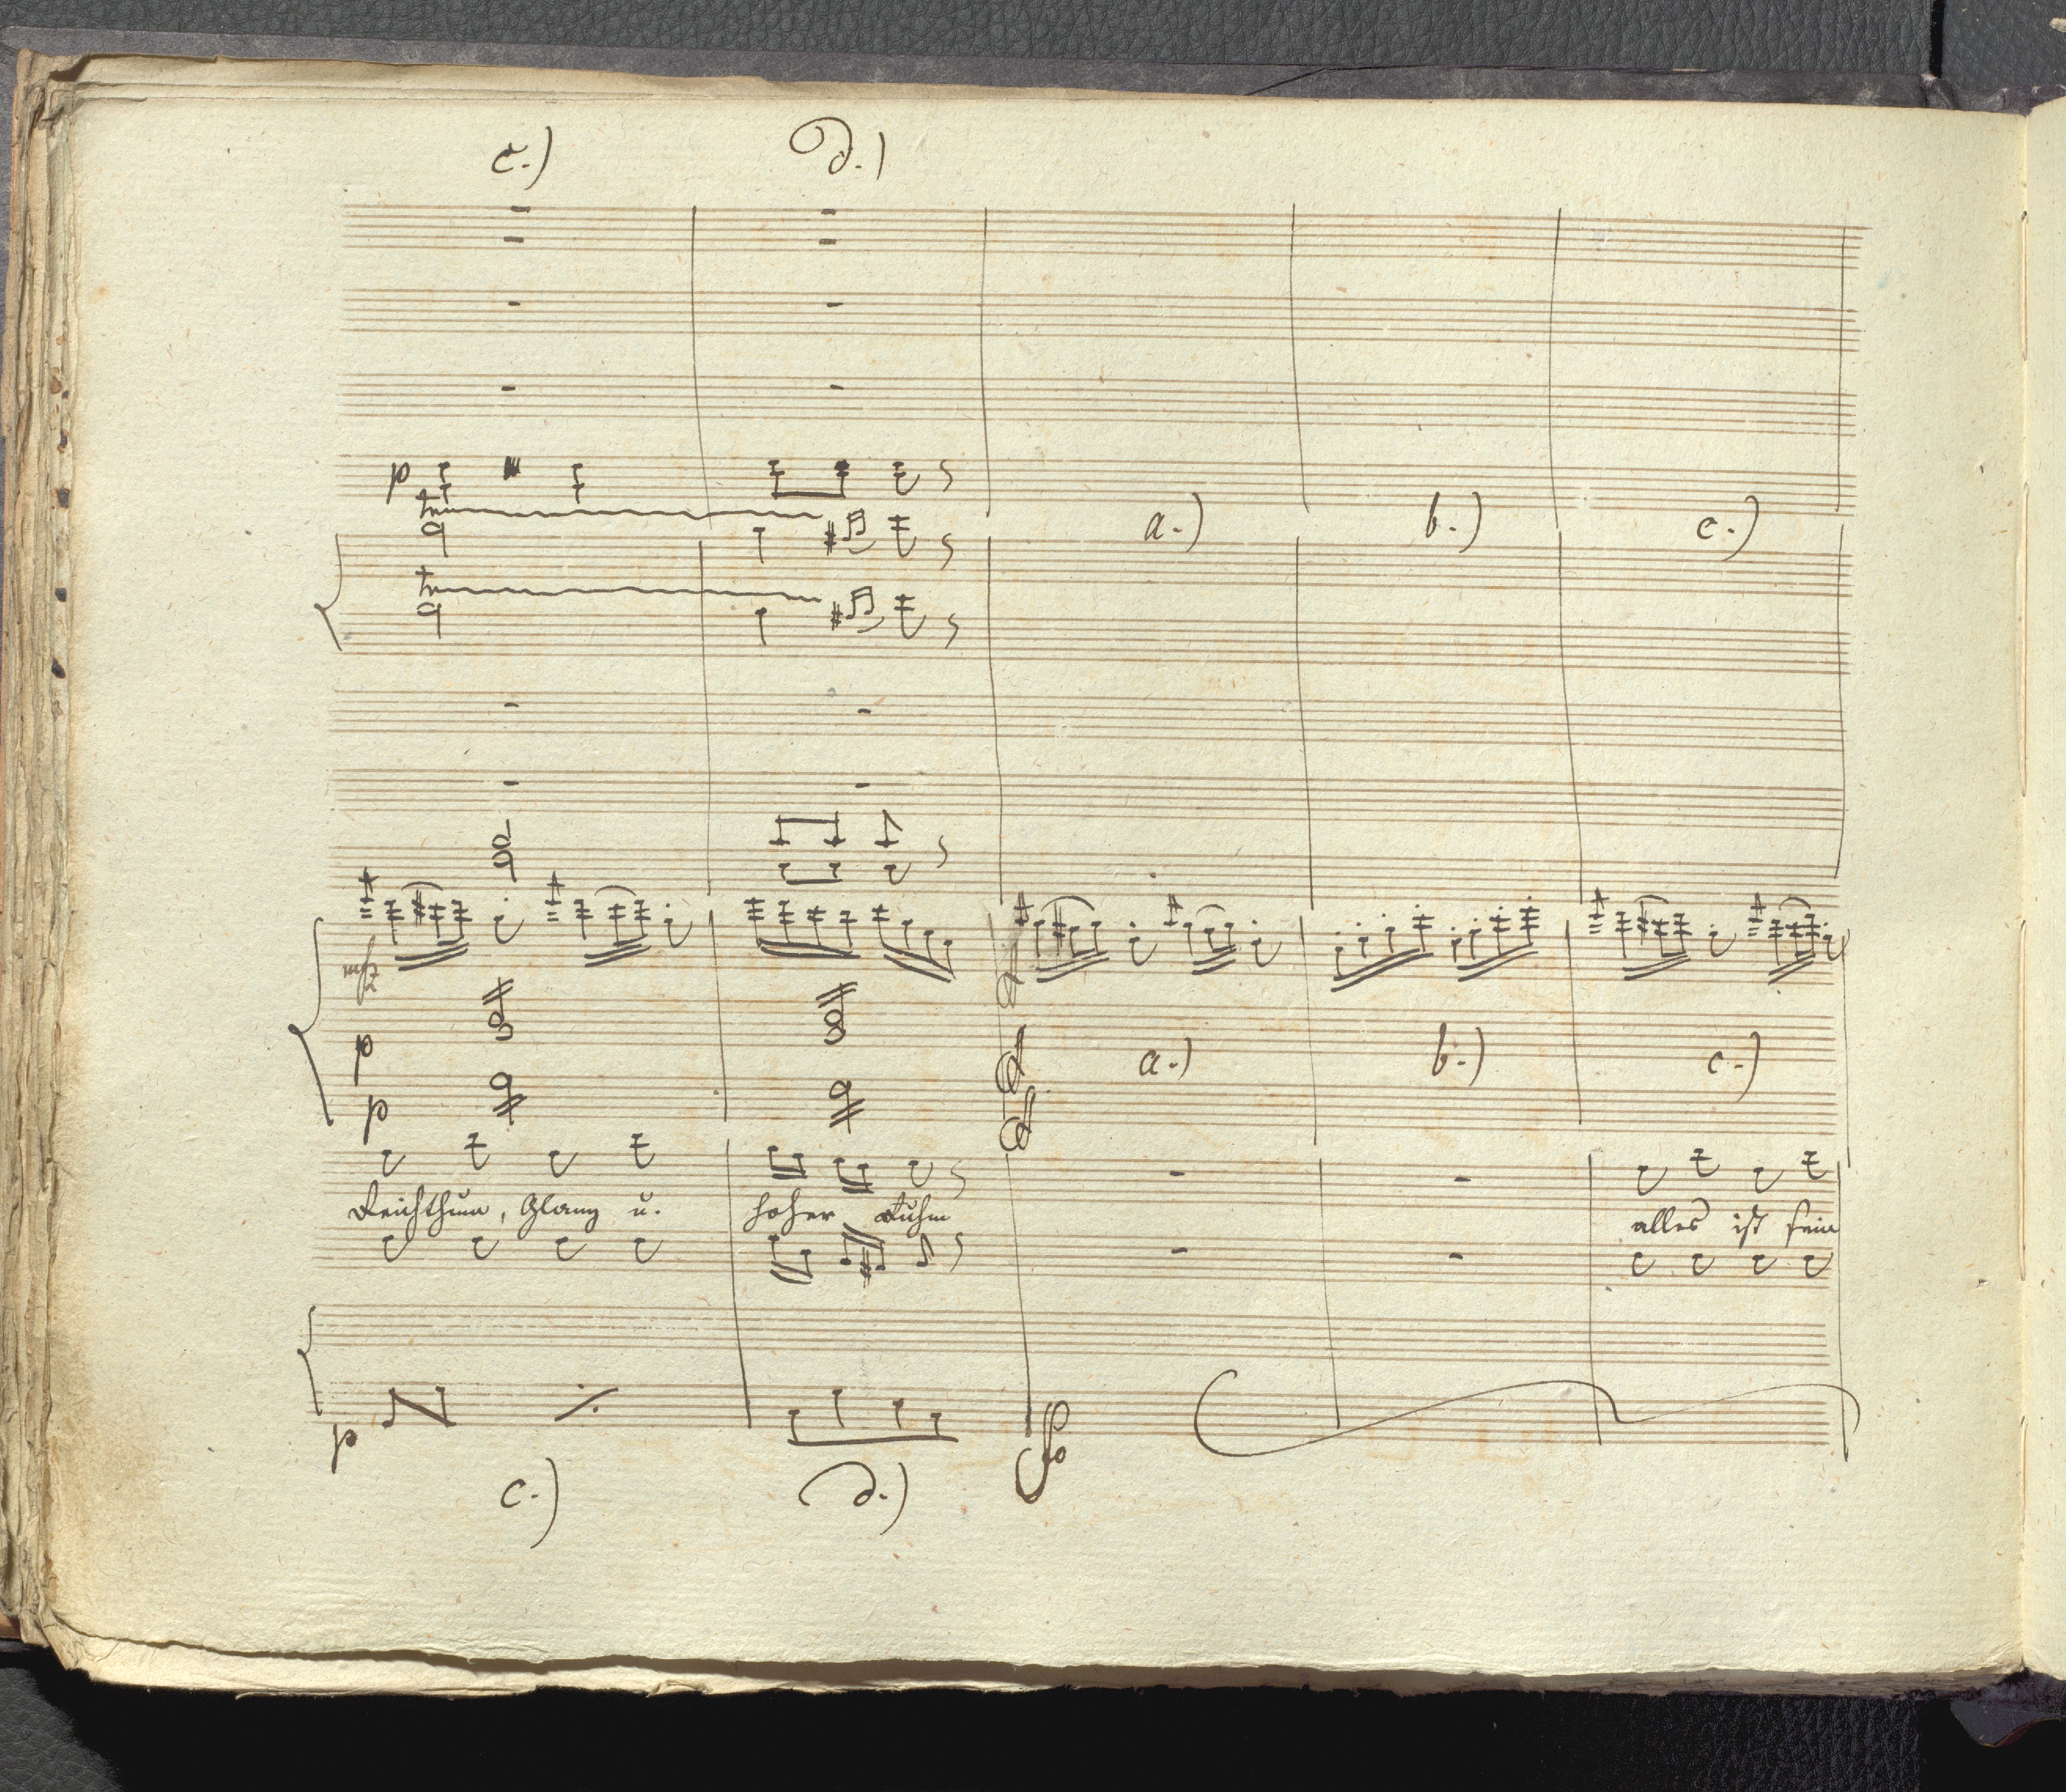 c.) d.)
p
tr
a.) b.) c.)
tr
mfz
p
a.) b.) c.)
p
Reichthum, Glanz u. hoher Ruhm
alles ist sein
p
c.) d.)